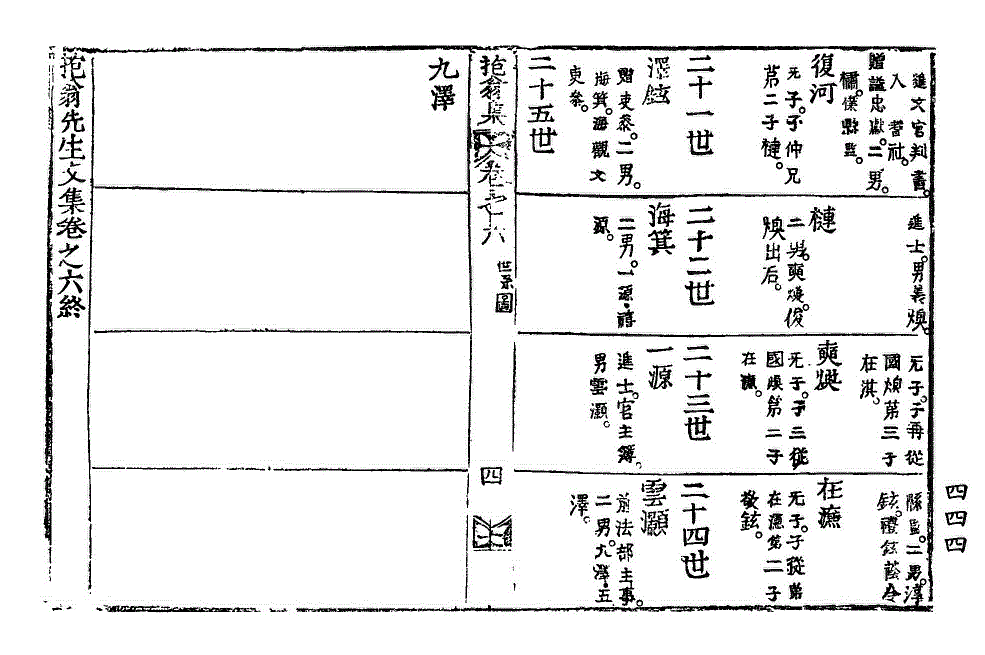 進文官判書。
入耆社。
贈謚忠獻。二男。
縣監。
復河
无子。子仲兄
第二子槤。
二十一世
澤鉉
贈吏參。二男。
海箕。海觀文
吏參。
二十五世
進士。男善煥。
槤
二男。奭煥。俊
煥出后。
二十二世
海箕
二男。一源。禧
源。
无子。子再從
國煥第三子
在淇。
奭煥
无子。子三從
國煥第二子
二十三世
一源
進士。官主簿。
男雲灝。
縣監。二男。淳
鉉。禮鉉蔭令
无子。子從弟
第二子
敬鉉。
二十四世
雲灝
前法部主事。
二男。九澤。五
澤。
抱翁集
卷之六
世系圖
四
九澤
抱翁先生文集卷之六終
四四四